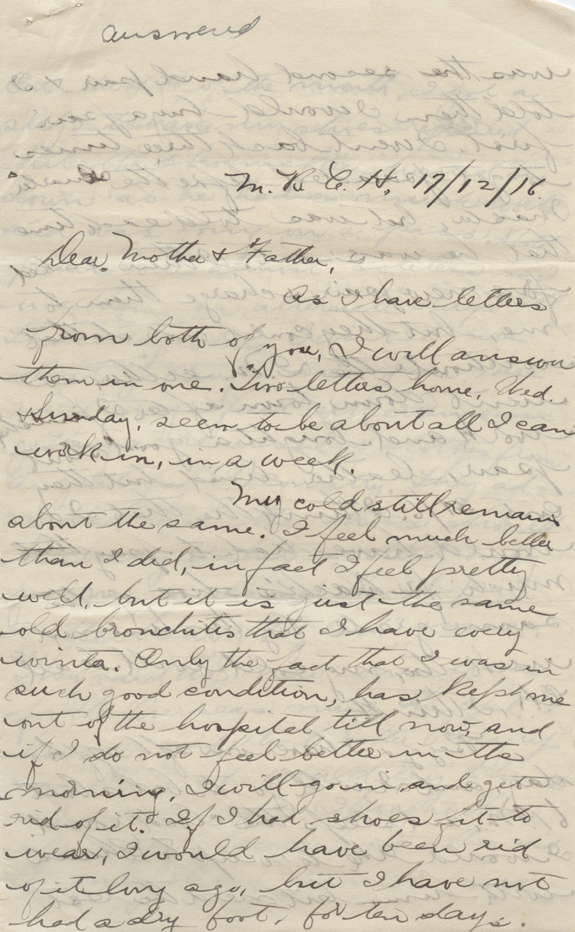 answered
M. B. C. H. 17/12/16.
Dear Mother & Father,
As I have letters
from both of you, I will answer
them in one. Two letters home, Wed.
& Sunday, seem to be about all I can
work in, in a week.
My cold still remains
about the same. I feel much better
than I did, in fact I feel pretty
well, but it is just the same
old bronchitis that I have every
winter. Only the fact that I was in
such good condition, has kept me
out of the hospital till now, and
if I do not feel better in the
morning, I will go in and get
rid of it. If I had shoes fit to
wear, I would have been rid
of it long ago, but I have not
had a dry foot, for ten days.